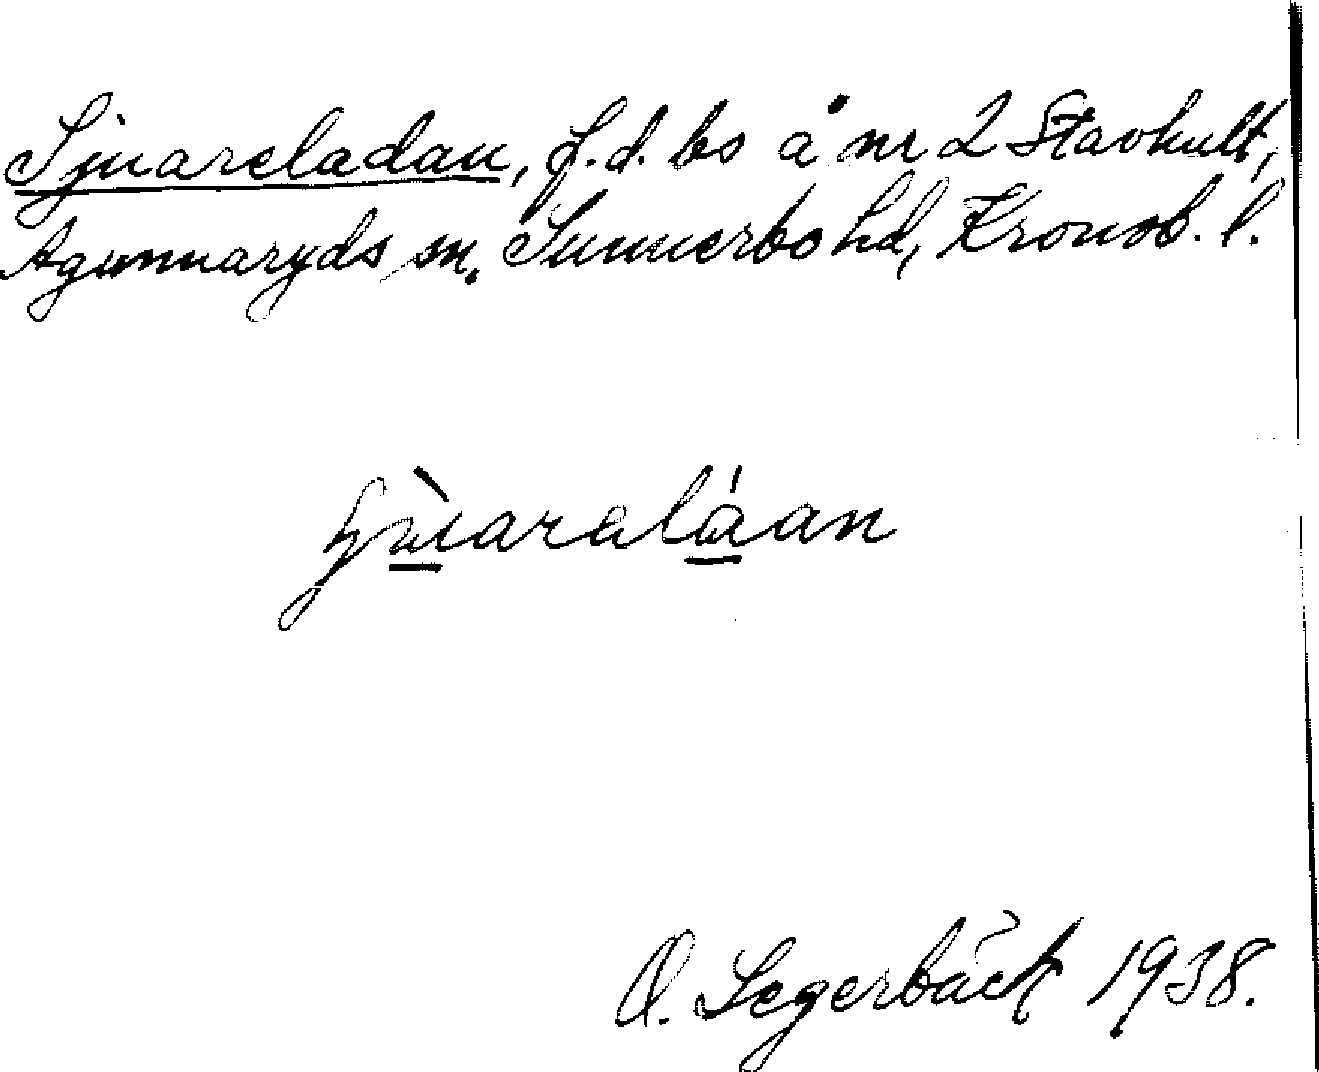 Sjuareladan, f.d. bs å nr 2 Stavhult,
Agunnaryds sn. Sunnerbo hd, Kronob. l.
O. Segerbäck 1938.